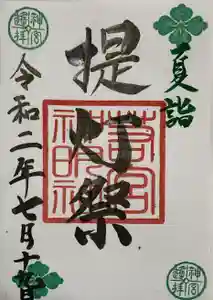 夏詣
提灯祭
神明社
令和二年七月十九日
神宮
遙拝
神宮
遙拝